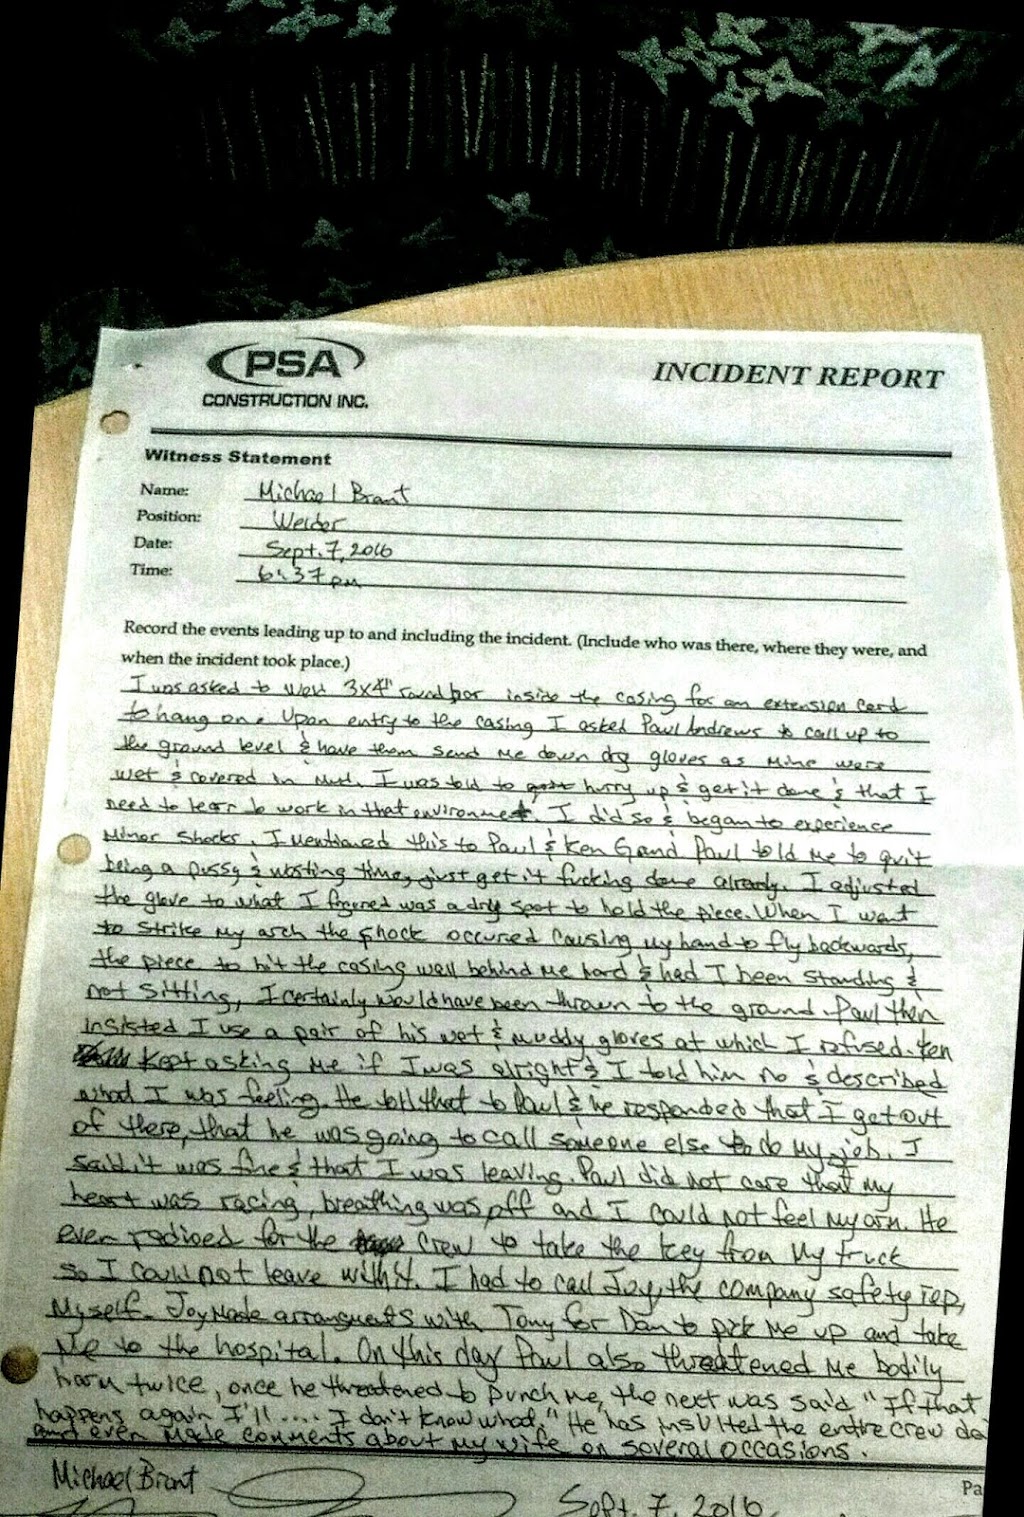 PSA
CONSTRUCTION INC.
INCIDENT REPORT
Witness Statement
Name: Michael Brant
Position: Welder
Date: Sept. 7, 2016
Time: 6:37 pm
Record the events leading up to and including the incident. (Include who was there, where they were, and
when the incident took place.)
I was asked to weld 3x4" round bar inside the casing for an extension cord
to hang on. Upon entry to the casing I asked Paul Andrews to call up to
the ground level & have them send me down dry gloves as mine were
wet & covered in mud. I was told to hurry up & get it done & that I
need to learn to work in that environment. I did so & began to experience
minor shocks. I mentioned this to Paul & Ken G and Paul told me to quit
being a pussy & wasting time, just get it fucking done already. I adjusted
the glove to what I figured was a dry spot to hold the piece. When I went
to strike my arch the shock occured causing my hand to fly backwards,
the piece to hit the casing wall behind me hard & had I been standing &
not sitting, I certainly would have been thrown to the ground. Paul then
insisted I use a pair of his wet & muddy gloves at which I refused. Ken
kept asking me if I was alright & I told him no & described
what I was feeling. He told that to Paul & he responded that I get out
of there, that he was going to call someone else to do my job. I
said it was fine & that I was leaving. Paul did not care that my
heart was racing, breathing was off and I could not feel my arm. He
even radioed for the crew to take the key from my truck
so I could not leave with it. I had to call Joy, the company safety rep,
myself. Joy made arrangments with Tony for Dan to pick me up and take
me to the hospital. On this day Paul also threatened me bodily
harm twice, once he threatened to punch me, the next was said "If that
happens again I'll .... I don't know what." He has insulted the entire crew
and even made comments about my wife on several occasions.
Michael Brant
Sept. 7, 2016
Pa